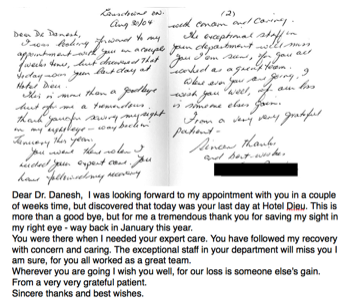 Lansdowne on.
Aug 30/04
Dear Dr Danesh,
I was looking forward to my
appointment with you in a couple
of weeks time, but discovered that
today was your last day at
Hotel Dieu.
This is more than a goodbye
but for me a tremendous
thank you for saving my sight
in my right eye - way back in
January this year.
You were there when I
needed your expert care. You
have followed my recovery
(2)
with concern and caring.
The exceptional staff in
your department will miss
you I am sure, for you all
worked as a great team.
Wherever you are going, I
wish you well, for our loss
is someone else's gain.
From a very very grateful
patient -
Sincere thanks
and best wishes.
Dear Dr. Danesh, I was looking forward to my appointment with you in a couple
of weeks time, but discovered that today was your last day at Hotel Dieu. This is
more than a good bye, but for me a tremendous thank you for saving my sight in
my right eye - way back in January this year.
You were there when I needed your expert care. You have followed my recovery
with concern and caring. The exceptional staff in your department will miss you I
am sure, for you all worked as a great team.
Wherever you are going I wish you well, for our loss is someone else's gain.
From a very very grateful patient.
Sincere thanks and best wishes.